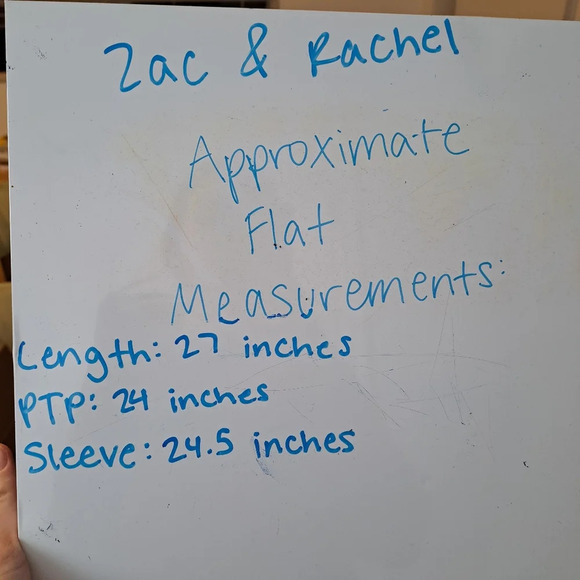 Zac & Rachel
Approximate
Flat
Measurements:
Length: 27 inches
PTP: 24 inches
Sleeve: 24.5 inches